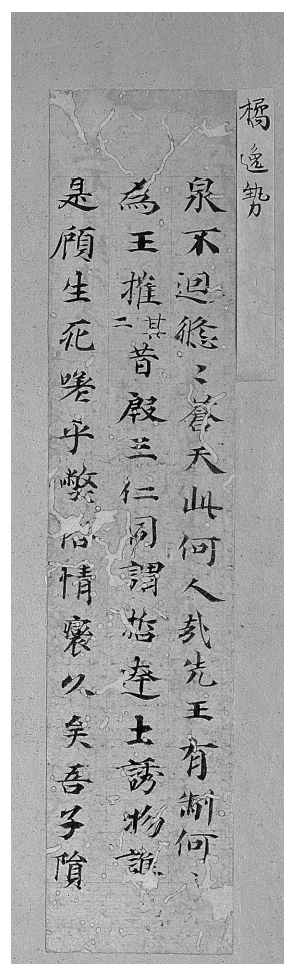 橘逸勢
泉不迴悠〻蒼天此何人哉先王有制何〻
為王摧其二昔殷三仁同謂哲達士誘物誰
是顧生死嗟乎弊俗情褒久矣吾子隕